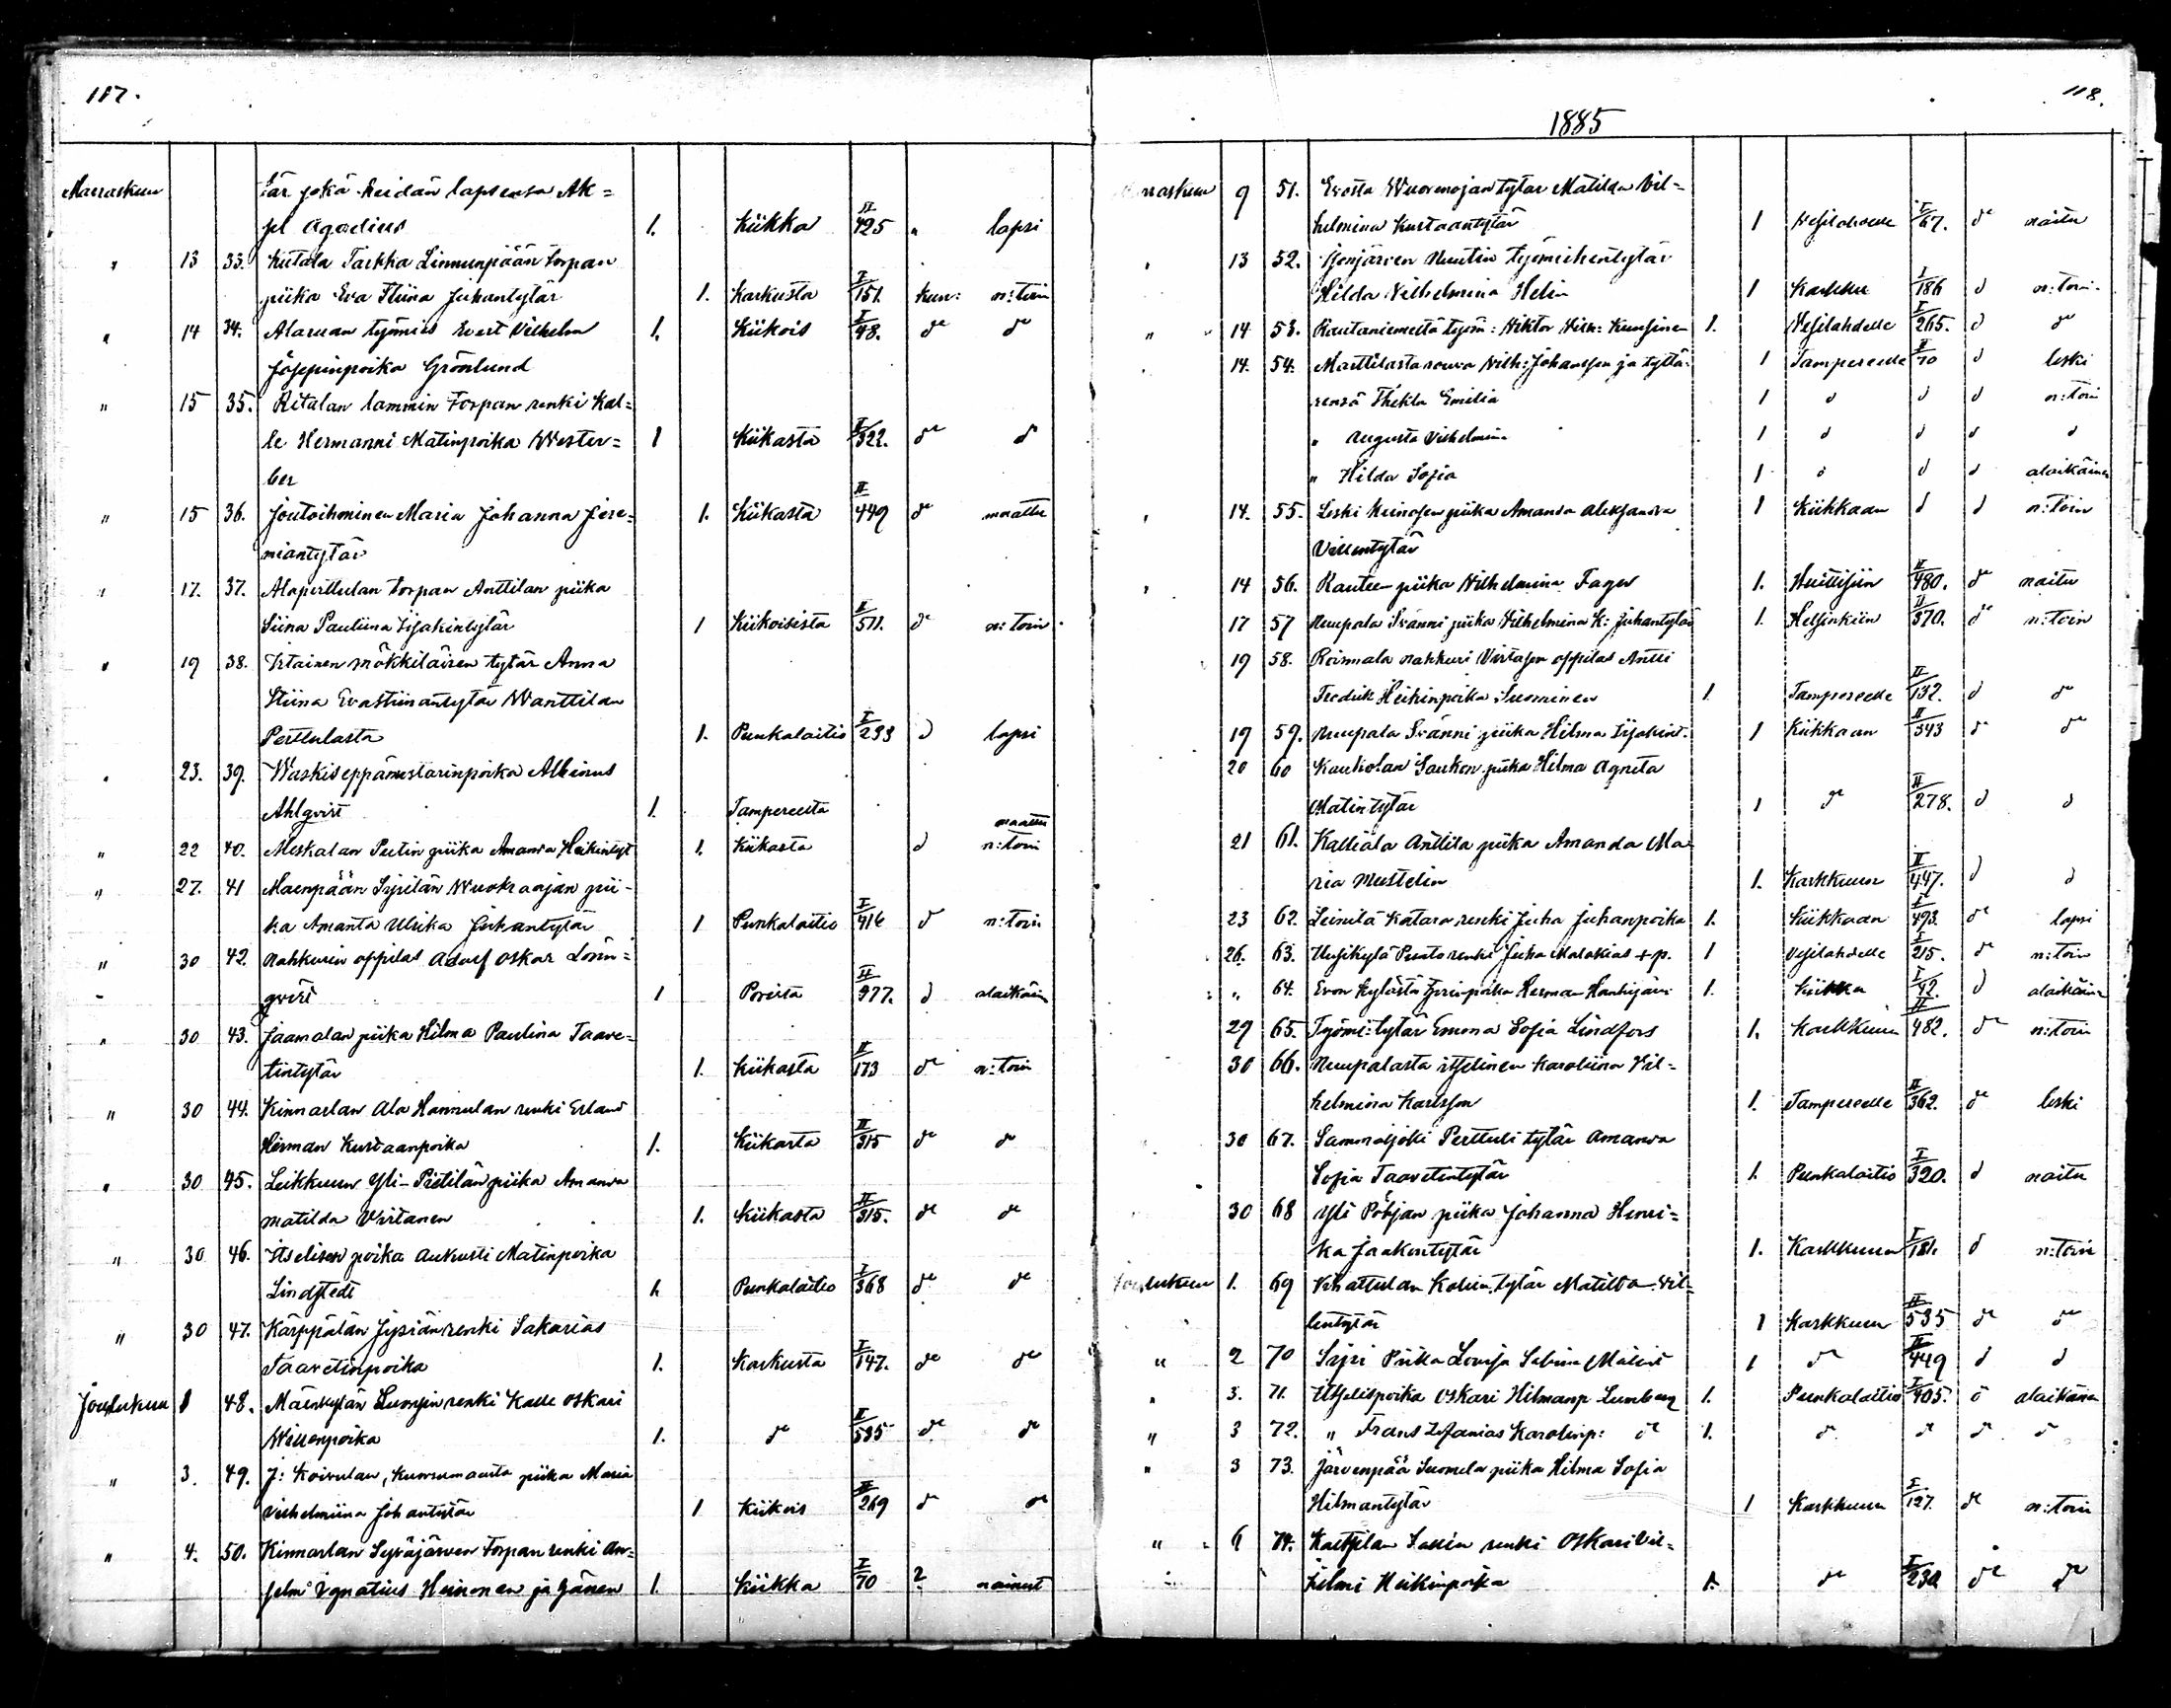 117.
Marraskuu tär jokä heidän lapsensa Ak=
sel Agadius 1. Kiikka II/425 " lapsi
" 13 33. Kutala Tarkka Linnunpään torpan
piika Eva Stiina Juhantytär 1. Karkusta I/151. kun: n:toin
" 14 34. Alaruan työmies Evert Vilhelm 1. Kiikois I/48. do do
Jösseppinpoika Grönlund
" 15 35. Ritalan lammin torpan renki Kal=
le Hermanni Matinpoika Wester= 1 Kiikasta I/322. do do
ber
" 15 36. Joutoihminen Maria Johanna Jere= 1. Kiikasta II/449 do naattu
miantytär
" 17. 37. Alaperttulan torpan Anttilan piika
Siina Pauliina Iisakintytär 1 Kiikoisista II/511. do n:toin
" 19 38. Irtainen mökkiläisen tytär Anna
Stiina Evastiinantytär Wanttilan
Perttulasta 1. Punkalaitio I/233 d lapsi
" 23. 39. Waskiseppämestarinpoika Albinus
Ahlqvist 1. Tampereelta
" 22 40. Meskalan Pietin piika Amanda Heikintyt 1. Kiikasta d n:toin
" 27. 41 Maenpään Sipilän Wuokraajan pii-
ka Amanta Ulrika Juhantytär 1 Punkalaitio I/416 d n:toin
" 30 42. Nahkurin oppilas Adolf Oskar Lönn=
qvist 1 Porista II/977. d alaikäin
" 30 43. Jaamalan piika Hilma Paulina Taave=
tintytär 1. Kiikasta II/173 do n:toin
" 30 44. Kinnarlan Ala Hannulan renki Erland
Herman Kustaanpoika 1. Kiikasta II/315 do do
" 30 45. Leikkuun Yli-Pietilän piika Amanda
Matilda Virtanen 1. Kiikasta II/315. do do
" 30 46. Itselisen poika Aukusti Matinpoika
Lindstedt 1. Punkalaitio I/368 do do
" 30 47. Karppälän Jyrän renki Sakarias
Taavetinpoika 1. Karkusta I/147. do do
Joulukuu 1 48. Mäenkylän Luonsin renki Kalle Oskari
Willenpoika 1. do II/535 do do
" 3. 49. J: Koivulan, Kuorsumaasta piika Maria
Vilhelmiina Johantytär 1 Kiikois II/269 d do
" 4. 50. Kinnarlan Syväjärven torpan renki An=
selmi Ignatius Heinonen ja hänen 1. Kiikka I/70 2 nainut
118.
1885
Marraskuu 9 51. Evosta Wuorenojan tytär Matilda Vil=
helmina Kustaantytär 1 Vesilahdelle I/67. do naitu
" 13 52. Hilda Vilhelmina Helin 1 Karkku I/186 d n:toin
" 14 53. Rautaniemeltä työm: Viktor Vilh: Kunsinen 1. Vesilahdelle I/265. d do
" 14. 54. Marttilasta rouva Vilh: Johansson ja tyttä- 1 Tampereelle II/70 d leski
rensä Thekla Emilia 1 d d d n:toin
" Augusta Vilhelmin 1 d d d d
" Hilda Sofia 1 d d d alaikäinen
" 14. 55. Leski Heinosen piika Amanda Aleksandra 1 Kiikkaan d d n:toin
Villentytär
" 14 56. Rautee piika Vilhelmina Fager 1. Huittisiin II/480. do naitu
17 57 Nuupala Svänni piika Vilhelmina K: Juhantytär 1. Helsinkiin II/370. do n:toin
19 58. Roismala nahkuri Virtasen oppilas Antti
Fredrik Heikinpoika Suominen 1. Tampereelle II/132. d do
19 59. Nuupala Svänni piika Hilma Iisakint. 1 Kiikkaan II/343 do do
20 60 Kaukolan Sarkon piika Hilma Agneta
Matintytär 1 do II/278. d d
21 61. Kalliala Anttila piika Amanda Ma
ria Mustelin 1. Karkkuun II/447. d d
23 62. Leinilä Katara renki Juha Juhanpoika 1. Kiikkaan I/493. do lapsi
26. 63. Uusikylä Punto renki Juha Malakias +p. 1 Vesilahdelle I/215. do n:toin
" 64. Evon kylästä poika Herman Hauhijärvi 1. Kiikka I/42. d alaikäinen
29 65. Työmi: tytär Emma Sofia Lindfors 1. Karkkuun II/482. do n:toin
30 66. Nuupalasta itsellinen Karoliina Vil=
helmina Karlsson 1. Tampereelle II/362. do leski
30 67. Sammaljoki Perttuli tytär Amanda
Sofia Taavetintytär 1. Punkalaitio I/320. d naitu
30 68 Yli Pohjan piika Johanna Henri=
ka Jaakontytär 1. Karkkuun I/181. d n:toin
Joulukuu 1. 69 Vihattulan Kalliin tytär Matilda Vil=
lentytär 1 Karkkuun II/535 do do
" 2 70 Piika Lovisa Sabina Matint 1 do II/449 d d
" 3. 71. Itselispoika Oskari Hilmanp Lumberg 1. Punkalaitio I/405. d alaikäinen
" 3 72. " Frans Zefanias Karolinp: do 1. do do do do
" 3 73. Järvenpää Suomela piika Hilma Sofia
Hilmantytär 1 Karkkuun I/127. do n:toin
" 6 74. Kaltsilan Sallin renki Oskari Vil=
helmi Heikinpoika 1. do I/230 do do